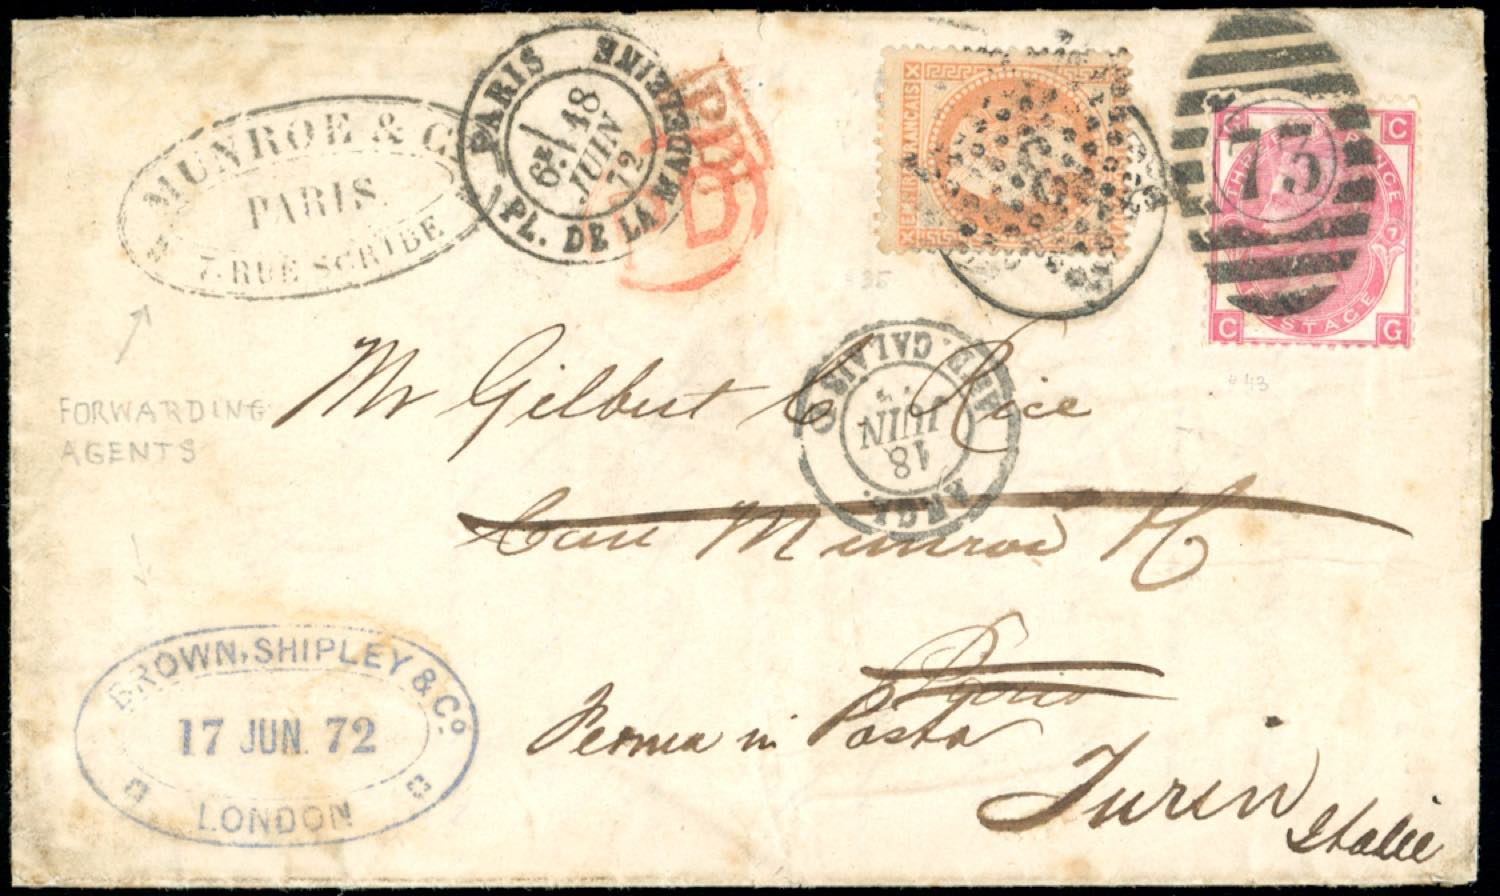 MUNROE & C
PARIS.
7. RUE SCRIBE
PARIS
6E 18
JUIN
72
PL. DE LA MADELEINE
PD
EMPIRE FRANÇAIS
73
C C
THREE PENCE
7
POSTAGE
C G
35
#43
CALAIS
JUIN
18
FORWARDING
AGENTS
Mr Gilbert C Rice
Care Munroe
Paris
Ferma in Posta
Turin
Italie
BROWN, SHIPLEY & Co.
17 JUN. 72
LONDON